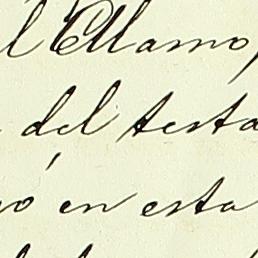 l Alamo,
del testa
ó en esta